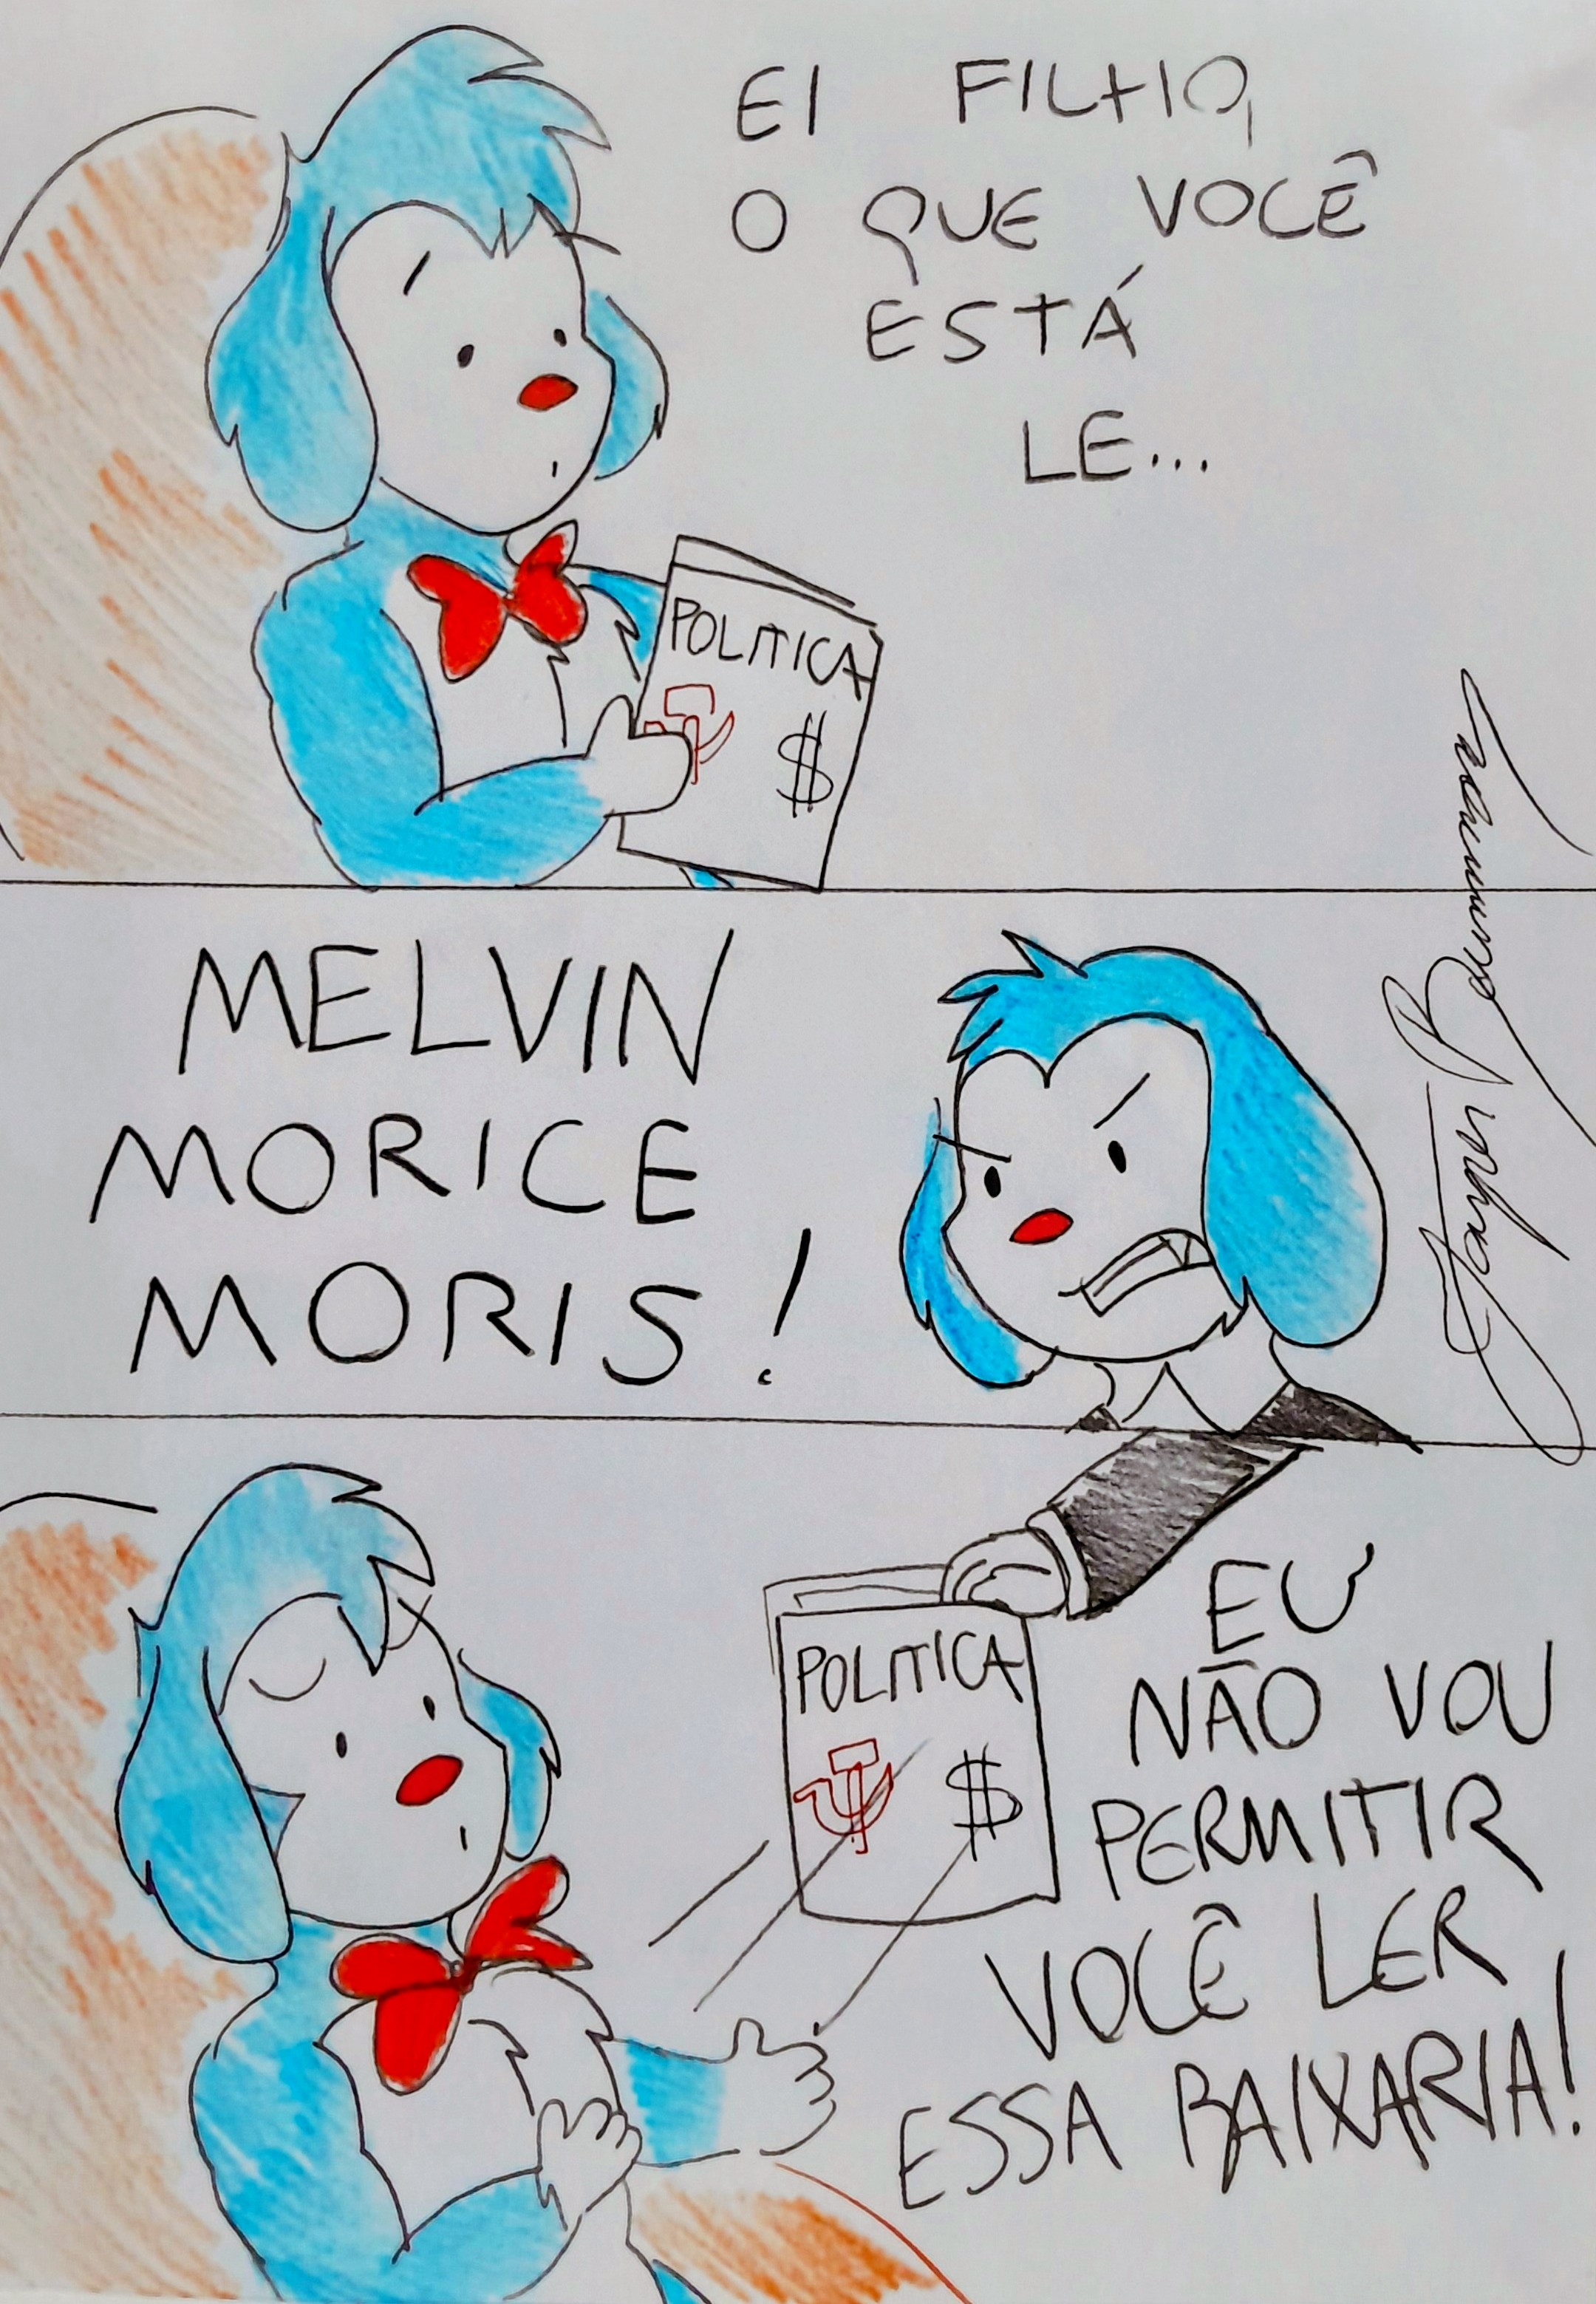 EI FILHO,
O QUE VOCÊ
ESTÁ
LE...
POLITICA
$
MELVIN
MORICE
MORIS!
POLITICA
$
EU
NÃO VOU
PERMITIR
VOCÊ LER
ESSA BAIXARIA!